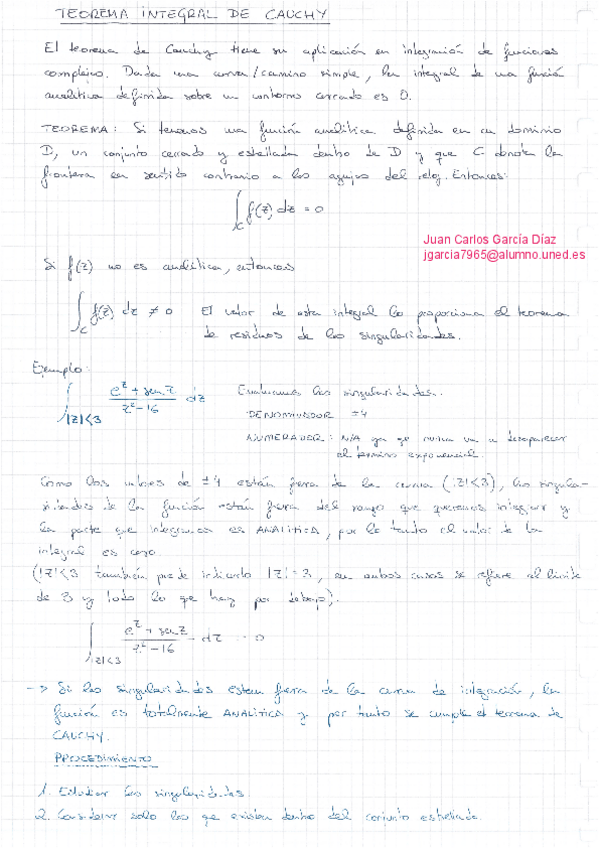 TEOREMA INTEGRAL DE CAUCHY
El teorema de Cauchy tiene su aplicación en integración de funciones
complejas. Dada una curva/camino simple, la integral de una función
analítica definida sobre un contorno cerrado es 0.
TEOREMA: Si tenemos una función analítica definida en un dominio
D, un conjunto cerrado y estrellado dentro de D y que C denota la
frontera en sentido contrario a las agujas del reloj. Entonces:
∫_C f(z) dz = 0
Juan Carlos García Díaz
jgarcia7965@alumno.uned.es
Si f(z) no es analítica, entonces
∫_C f(z) dz ≠ 0 El valor de esta integral lo proporciona el teorema
de residuos de las singularidades.
Ejemplo:
∫_{|z|<3} (e^z + sen z)/(z²-16) dz Evaluamos las singularidades.
DENOMINADOR ±4
NUMERADOR: N/A ya que nunca va a desaparecer
el termino exponencial.
Como los valores de ±4 están fuera de la curva (|z|<3), las singula-
ridades de la función están fuera del rango que queremos integrar y
la parte que integramos es ANALÍTICA, por lo tanto el valor de la
integral es cero.
(|z|<3 también puede indicarlo |z|=3, en ambos casos se refiere al límite
de 3 y todo lo que hay por debajo).
∫_{|z|<3} (e^z + sen z)/(z²-16) dz = 0
-> Si las singularidades estan fuera de la curva de integración, la
función es totalmente ANALÍTICA y por tanto se cumple el teorema de
CAUCHY.
PROCEDIMIENTO
1. Estudiar las singularidades.
2. Considerar solo las que existen dentro del conjunto estrellado.